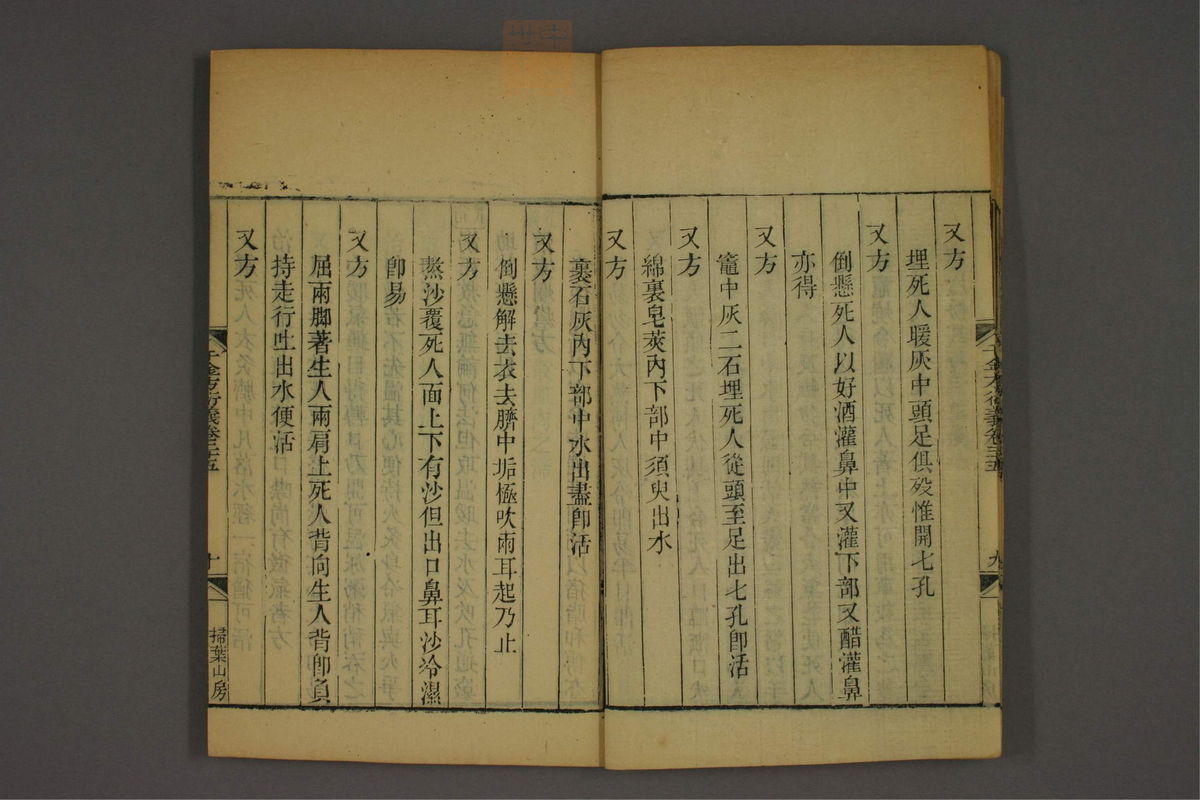 又方
埋死人暖灰中頭足俱殁惟開七孔
又方
倒懸死人以好酒灌鼻中又灌下部又醋灌鼻
亦得
又方
竈中灰二石埋死人從頭至足出七孔卽活
又方
綿裏皂莢內下部中須臾出水
又方
裏石灰內下部中水出盡卽活
又方
倒懸解去衣去臍中垢極吹兩耳起乃止
又方
熬沙覆死人面上下有沙但出口鼻耳沙冷濕
卽易
又方
屈兩脚著生人兩肩上死人背向生人背卽負
持走行吐出水便活
又方
千金方衍義卷二十五
九
千金方衍義卷二十五
十
掃葉山房